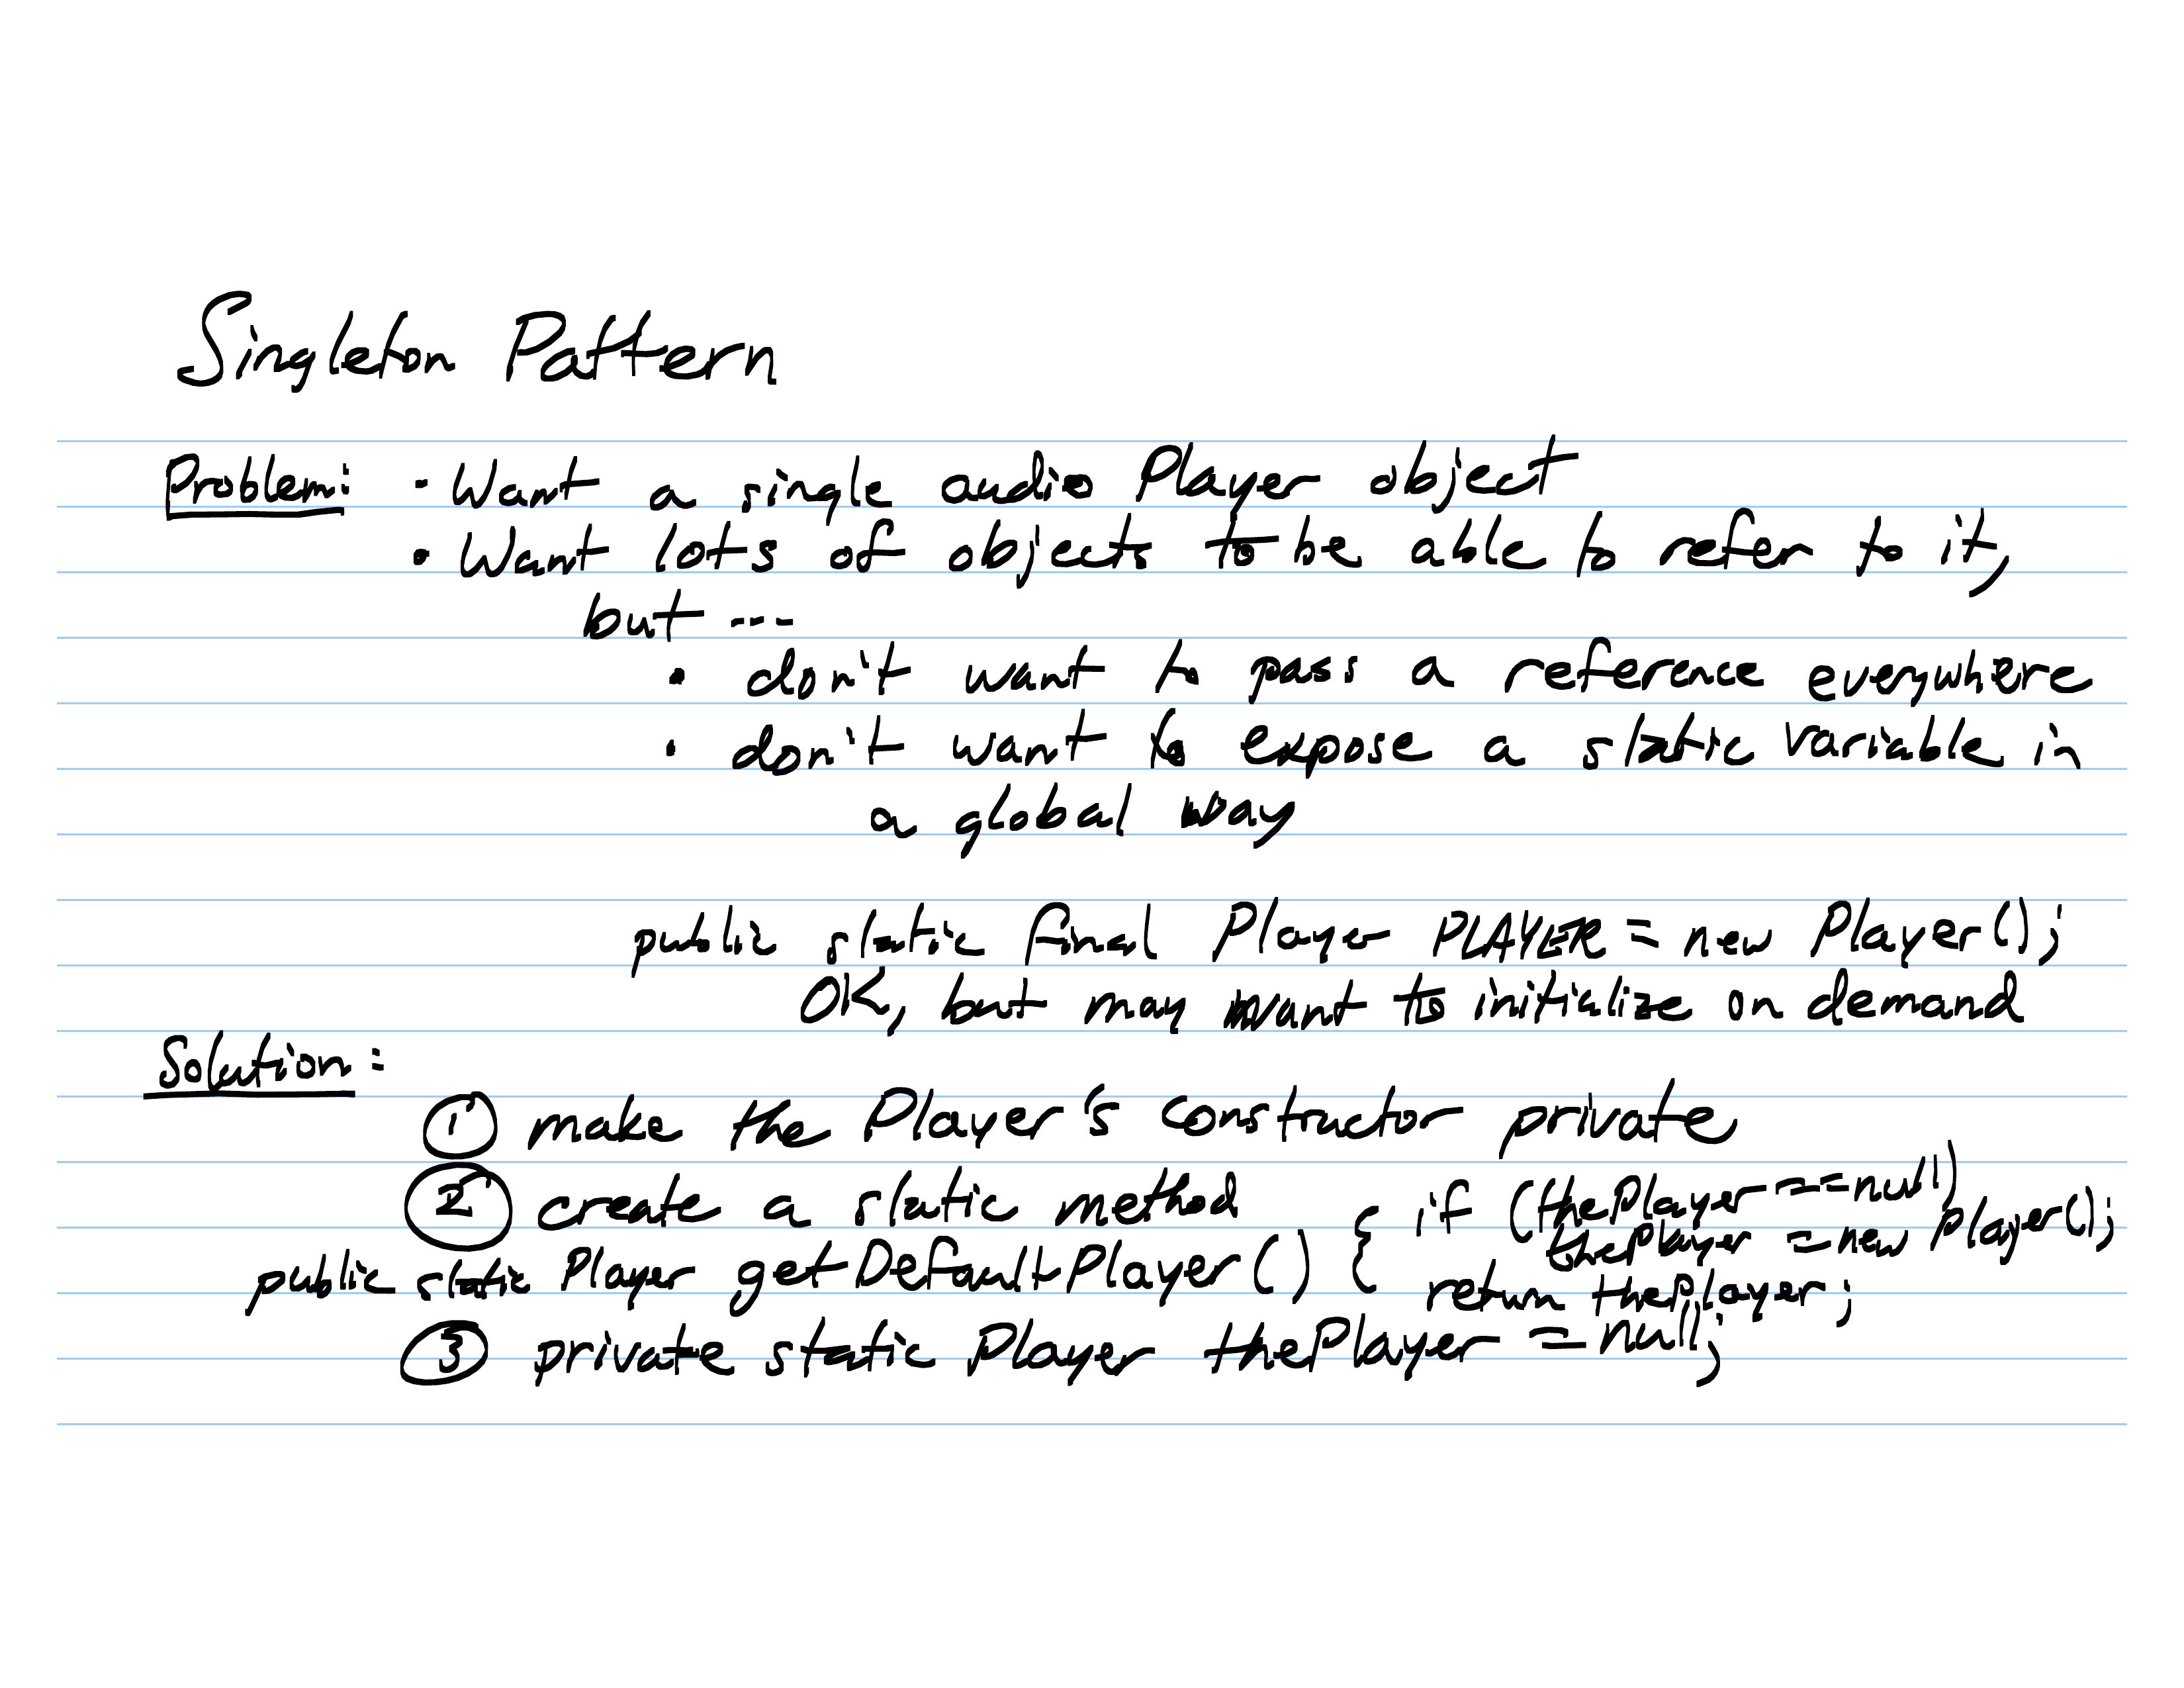 Singleton Pattern
Problem: • Want a single audio Player object
• Want lots of objects to be able to refer to it,
but ...
• don't want to pass a reference everywhere
• don't want to expose a static variable in
a global way
public static final Player PLAYER = new Player();
OK, but may want to initialize on demand
Solution:
① make the Player's constructor private
② create a static method
public static Player getDefaultPlayer() { if (thePlayer == null)
thePlayer = new Player();
return thePlayer;
③ private static Player thePlayer = null;